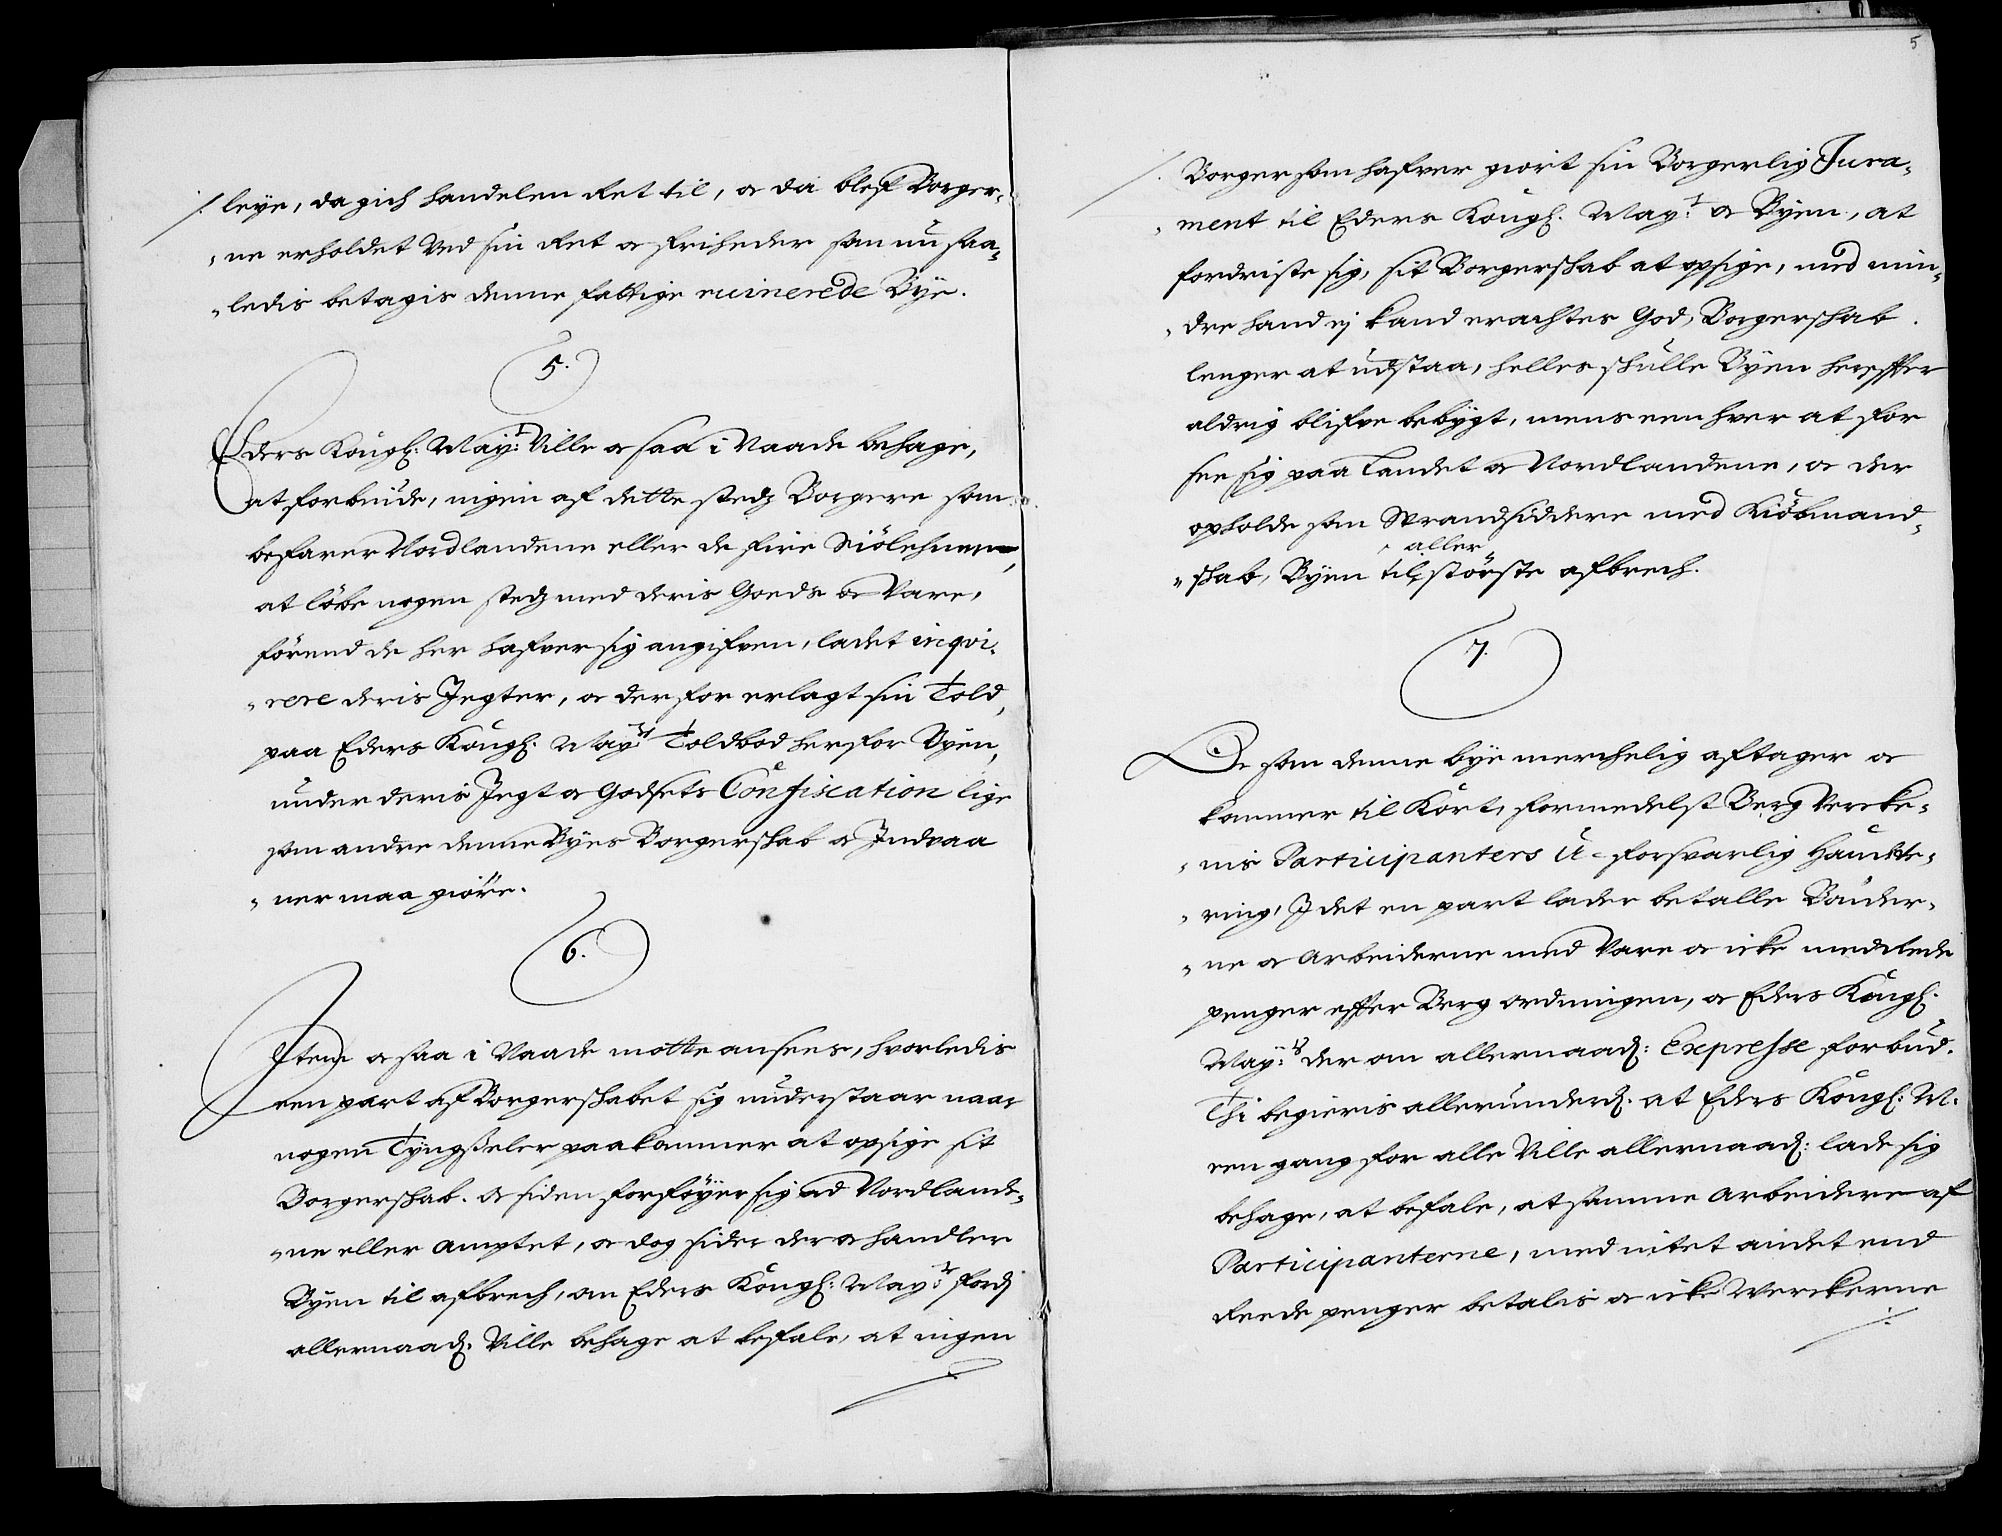 /. leye, da gich handelen Ret til, og da blef Borger„
„ne erholdet Ved sin Ret og friheder som nu saa„
„ledis betagis denne fattige ruinerede Bye.
5.
Eders Kongl: May:t Ville og saa i Naade behage,
at forbiude, ingen af dette stedz Borgere som
befarer Nordlandene eller de fire Siölehnerne,
at löbe nogen stedz med deris Goeds og Vare,
förend de her hafver sig angifven, ladet inqvi„
„rere deris Jegter, og der for erlagt sin Told,
paa Eders Kongl: May:ts Toldbod her for Byen,
under deris Jegt og Godsets Confiscation lige
som andre denne Byes Borgerskab og Indvaa
„ner maa giöre.
6.
Item og saa i Naade motte ansees, hvorledis
een part af Borgerskabet sig understaar naar
nogen Tyngsseler paakommer at opsige sit
Borgerskab. og siden forföyer sig ad Nordlande„
„ne eller Amptet, og dog sider der og handler
Byen til afbrech, om Eders Kongl: May:t ford
allernaad: Ville behage at befale, at ingen
/.
5
/. Borger som hafver giort sin Borgerlig Jura„
„ment til Eders Kongl: May:t og Byen, at
fordriste sig, sit Borgerskab at opsige, med min„
„dre hand ej kand erachtes God, Borgerskab
lenger at udstaa, helles skulle Byen herefter
aldrig blifve bebygt, mens een hver at for
see sig paa Landet og Nordlandene, og der
opholde som Strandsiddere med Kiöbmand„
„skab, Byen til aller störste afbrech.
7.
De som denne bye merchelig aftager og
kommer til Kort, formedelst Berg Vercke„
„nis Participanters U-forsvarlig Handte„
„ring, I det en part lader betalle Bönder„
„ne og Arbeiderne med Vare og icke med rede
penger efter Berg ordningen, og Eders Kongl:
May:ts der om allernaad: Expresse forbud.
Thi begieris allerunderd: at Eders Kongl: M.
een gang for alle Ville allernaad: lade sig
behage, at befale, at samme Arbeidere af
Participanterne, med intet andet end
Reede penger betalis og icke Werckerne
/.